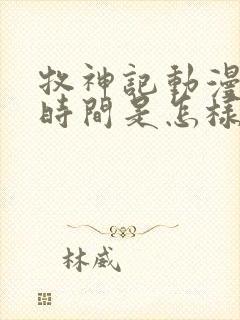 牧神記動漫
時間是怎樣
林威